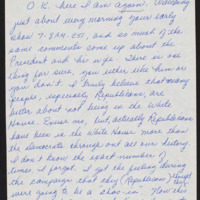 O.K. here I am again. Watching
just about every morning your early
show 7-8 A.M. EST, and so much of the
same comments come up about the
President and his wife. There is one
thing for sure, you either like them or
you don't. I truly believe that many
people, especially, Republicans, are
bitter about not being in the White
House. Excuse me, but, actually Republicans
have been in the White House more than
the democrats through out all our history.
I don't know the exact number of
times I forgot. I got the feeling during
the campaign that they (Republicans) thought they
were going to be a shoo-in. How this